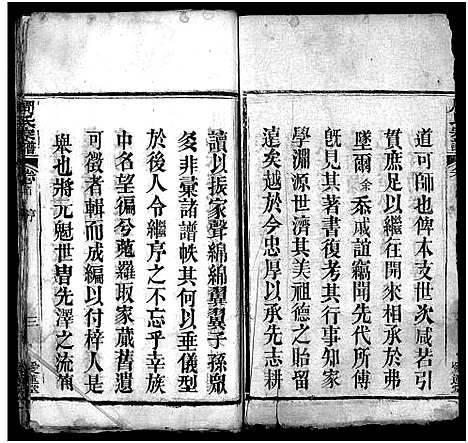 道可師也俾本支世次咸若引
貫庶足以繼往開來相承於弗
墜爾余忝戚誼竊聞先代所傳
旣見其著書復考其行事知家
學淵源世濟其美祖德之貽留
遠矣越於今忠厚以承先志耕
讀以振家聲綿綿翼翼子孫䖍
多非彙諸譜帙其何以垂儀型
於後人令繼序之不忘乎幸族
中名望徧兮蒐羅取家藏舊遺
可徵者輯而成編以付梓人是
舉也將元魁世胄先澤之流蔭
周氏宗譜
序
三